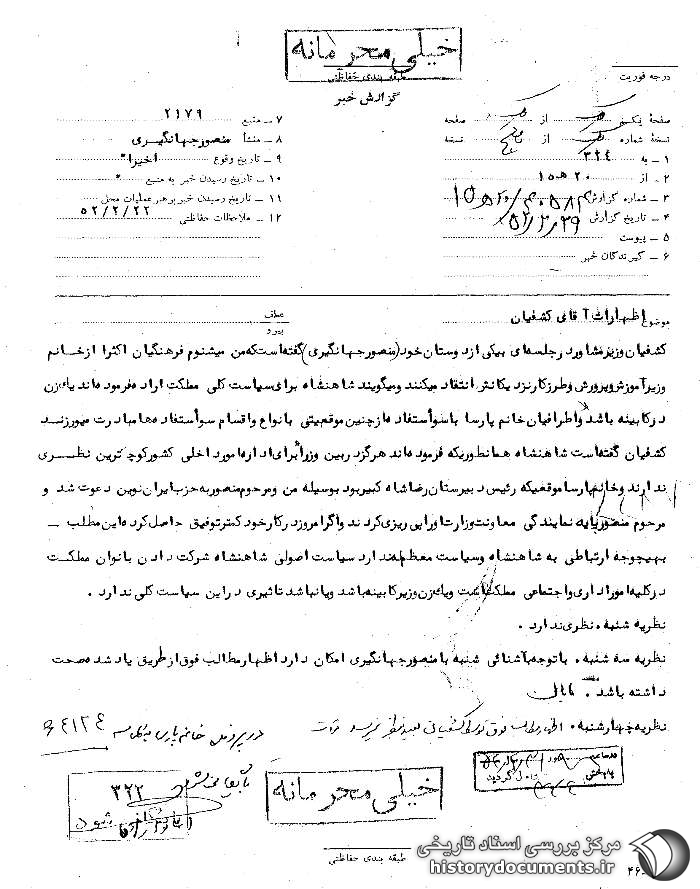 خیلی محرمانه
طبقه بندی حفاظتی
گزارش خبر
درجه فوریت
صفحهٔ یکم از صفحه
نسخهٔ شماره از نسخه
۱ ــ به ۳۲۴
۲ ــ از ۲۰ ه ۱۵
۳ ــ شماره گزارش
۴ ــ تاریخ گزارش
۵ ــ پیوست
۶ ــ گیرندگان خبر
۷ ــ منبع ۲۱۷۹
۸ ــ منشأ منصور جهانگیری
۹ ــ تاریخ وقوع اخیراً
۱۰ ــ تاریخ رسیدن خبر به منبع
۱۱ ــ تاریخ رسیدن خبر برهبر عملیات محل
۱۲ ــ ملاحظات حفاظتی ۵۲/۲/۲۲
موضوع اظهارات آقای کشفیان
عطف
پیرو
کشفیان وزیر مشاور در جلسه‌ای بیکی از دوستان خود (منصور جهانگیری) گفته است که من میشنوم فرهنگیان اکثرا از خانم
وزیر آموزش و پرورش و طرز کار نزدیکانش انتقاد میکنند و میگویند شاهنشاه برای سیاست کلی مملکت اراده فرموده‌اند یک زن
در کابینه باشد و اطرافیان خانم پارسا با سوء استفاده از چنین موقعیتی بانواع و اقسام سوء استفاده‌ها مبادرت میورزند
کشفیان گفته است شاهنشاه همانطوریکه فرموده‌اند هرگز در بین وزرا برای اداره امور داخلی کشور کوچکترین نظری
ندارند و خانم پارسا موقعیکه رئیس دبیرستان رضا شاه کبیر بود بوسیله من و مرحوم منصور به حزب ایران نوین دعوت شد و
مرحوم منصور پایه نمایندگی معاونت وزارت او را پی ریزی کردند و اگر امروز در کار خود کمتر توفیق حاصل کرده این مطلب ــ
بهیچوجه ارتباطی به شاهنشاه و سیاست معظم‌له ندارد سیاست اصولی شاهنشاه شرکت دادن بانوان مملکت
در کلیه امور اداری و اجتماعی مملکت است و یک زن وزیر کابینه باشد و یا نباشد تاثیری در این سیاست کلی ندارد .
نظریه شنبه . نظری ندارد .
نظریه سه شنبه . با توجه بآشنائی شنبه با منصور جهانگیری امکان دارد اظهار مطالب فوق از طریق یاد شده صحت
داشته باشد .
نظریه چهارشنبه . اظهار مطالب فوق توسط کشفیان بعید بنظر نمیرسد
در پرونده خانم پارسای
بایگانی شود
۳۲۲
خیلی محرمانه
طبقه بندی حفاظتی
مرکز بررسی اسناد تاریخی
historydocuments.ir